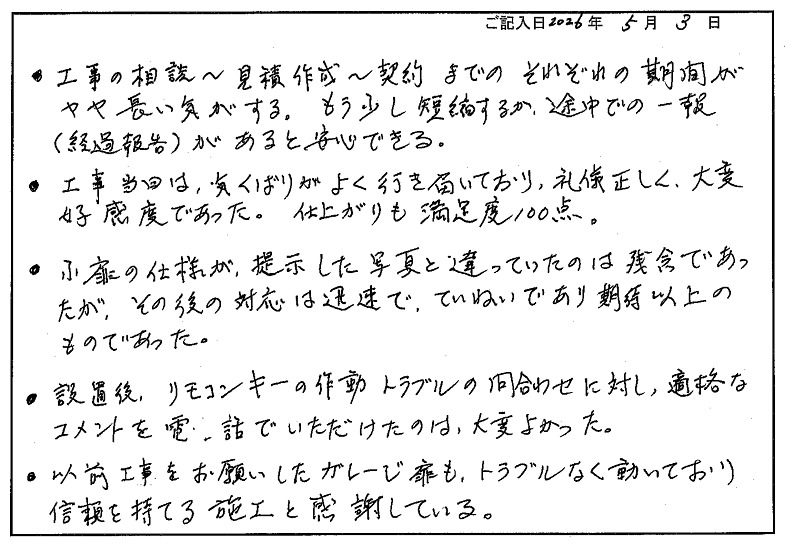 ご記入日2026年 5月 3日
・工事の相談～見積作成～契約 までの それぞれの期間が
やや長い気がする。 もう少し短縮するか、途中での一報
(経過報告)が あると安心できる。
・工事当日は、気くばりが よく行き届いており、礼儀正しく、大変
好感度であった。 仕上がりも 満足度100点。
・小扉の仕様が、提示した写真と違っていたのは残念であっ
たが、その後の対応は迅速で、ていねいであり期待以上の
ものであった。
・設置後、リモコンキーの作動トラブルの問合わせに対し、適格な
コメントを電話でいただけたのは、大変よかった。
・以前工事をお願いしたガレージ扉も、トラブルなく動いており
信頼を持てる施工と感謝している。